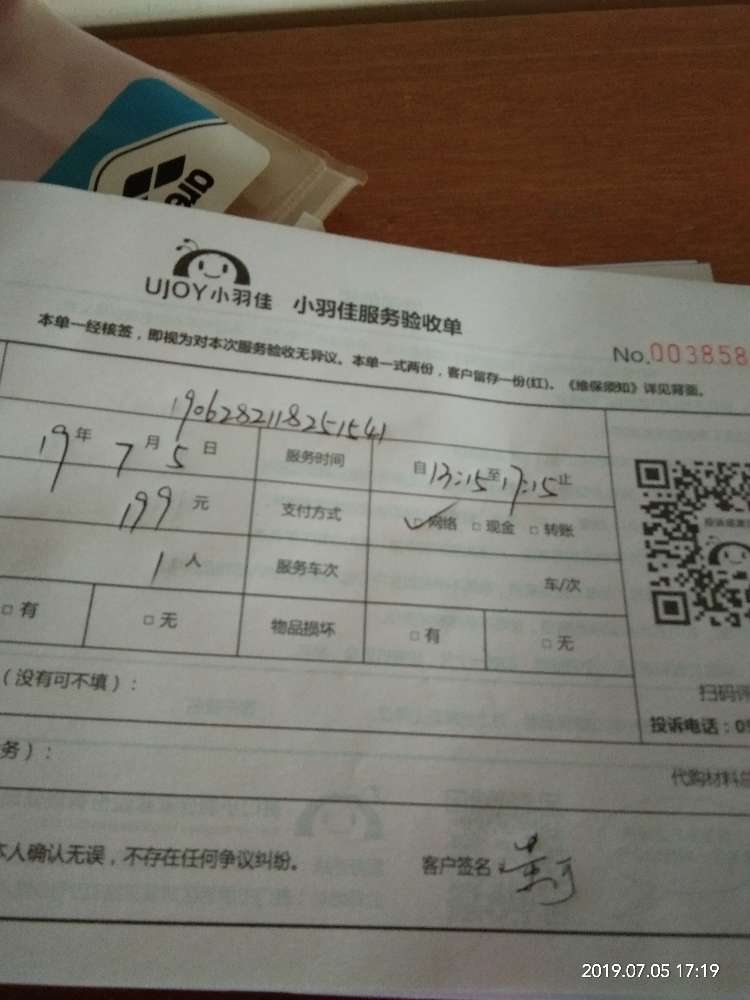 arena
UJOY小羽佳 小羽佳服务验收单
No.003858
本单一经核签，即视为对本次服务验收无异议。本单一式两份，客户留存一份(红)。《维保须知》详见背面。
190628211825154
19年7月5日 服务时间 自13:15至17:15止
199元 支付方式 ✓网络 □现金 □转账
1人 服务车次 车/次
□有 □无 物品损坏 □有 □无
（没有可不填）：
扫码评
投诉电话：05
务）：
代购材料总
本人确认无误，不存在任何争议纠纷。 客户签名：
2019.07.05 17:19